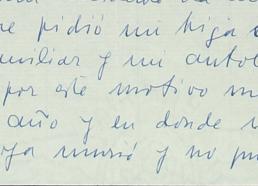 e pidió mi hija
miliar y mi auto
por este motivo
año y en donde
murió y no pu